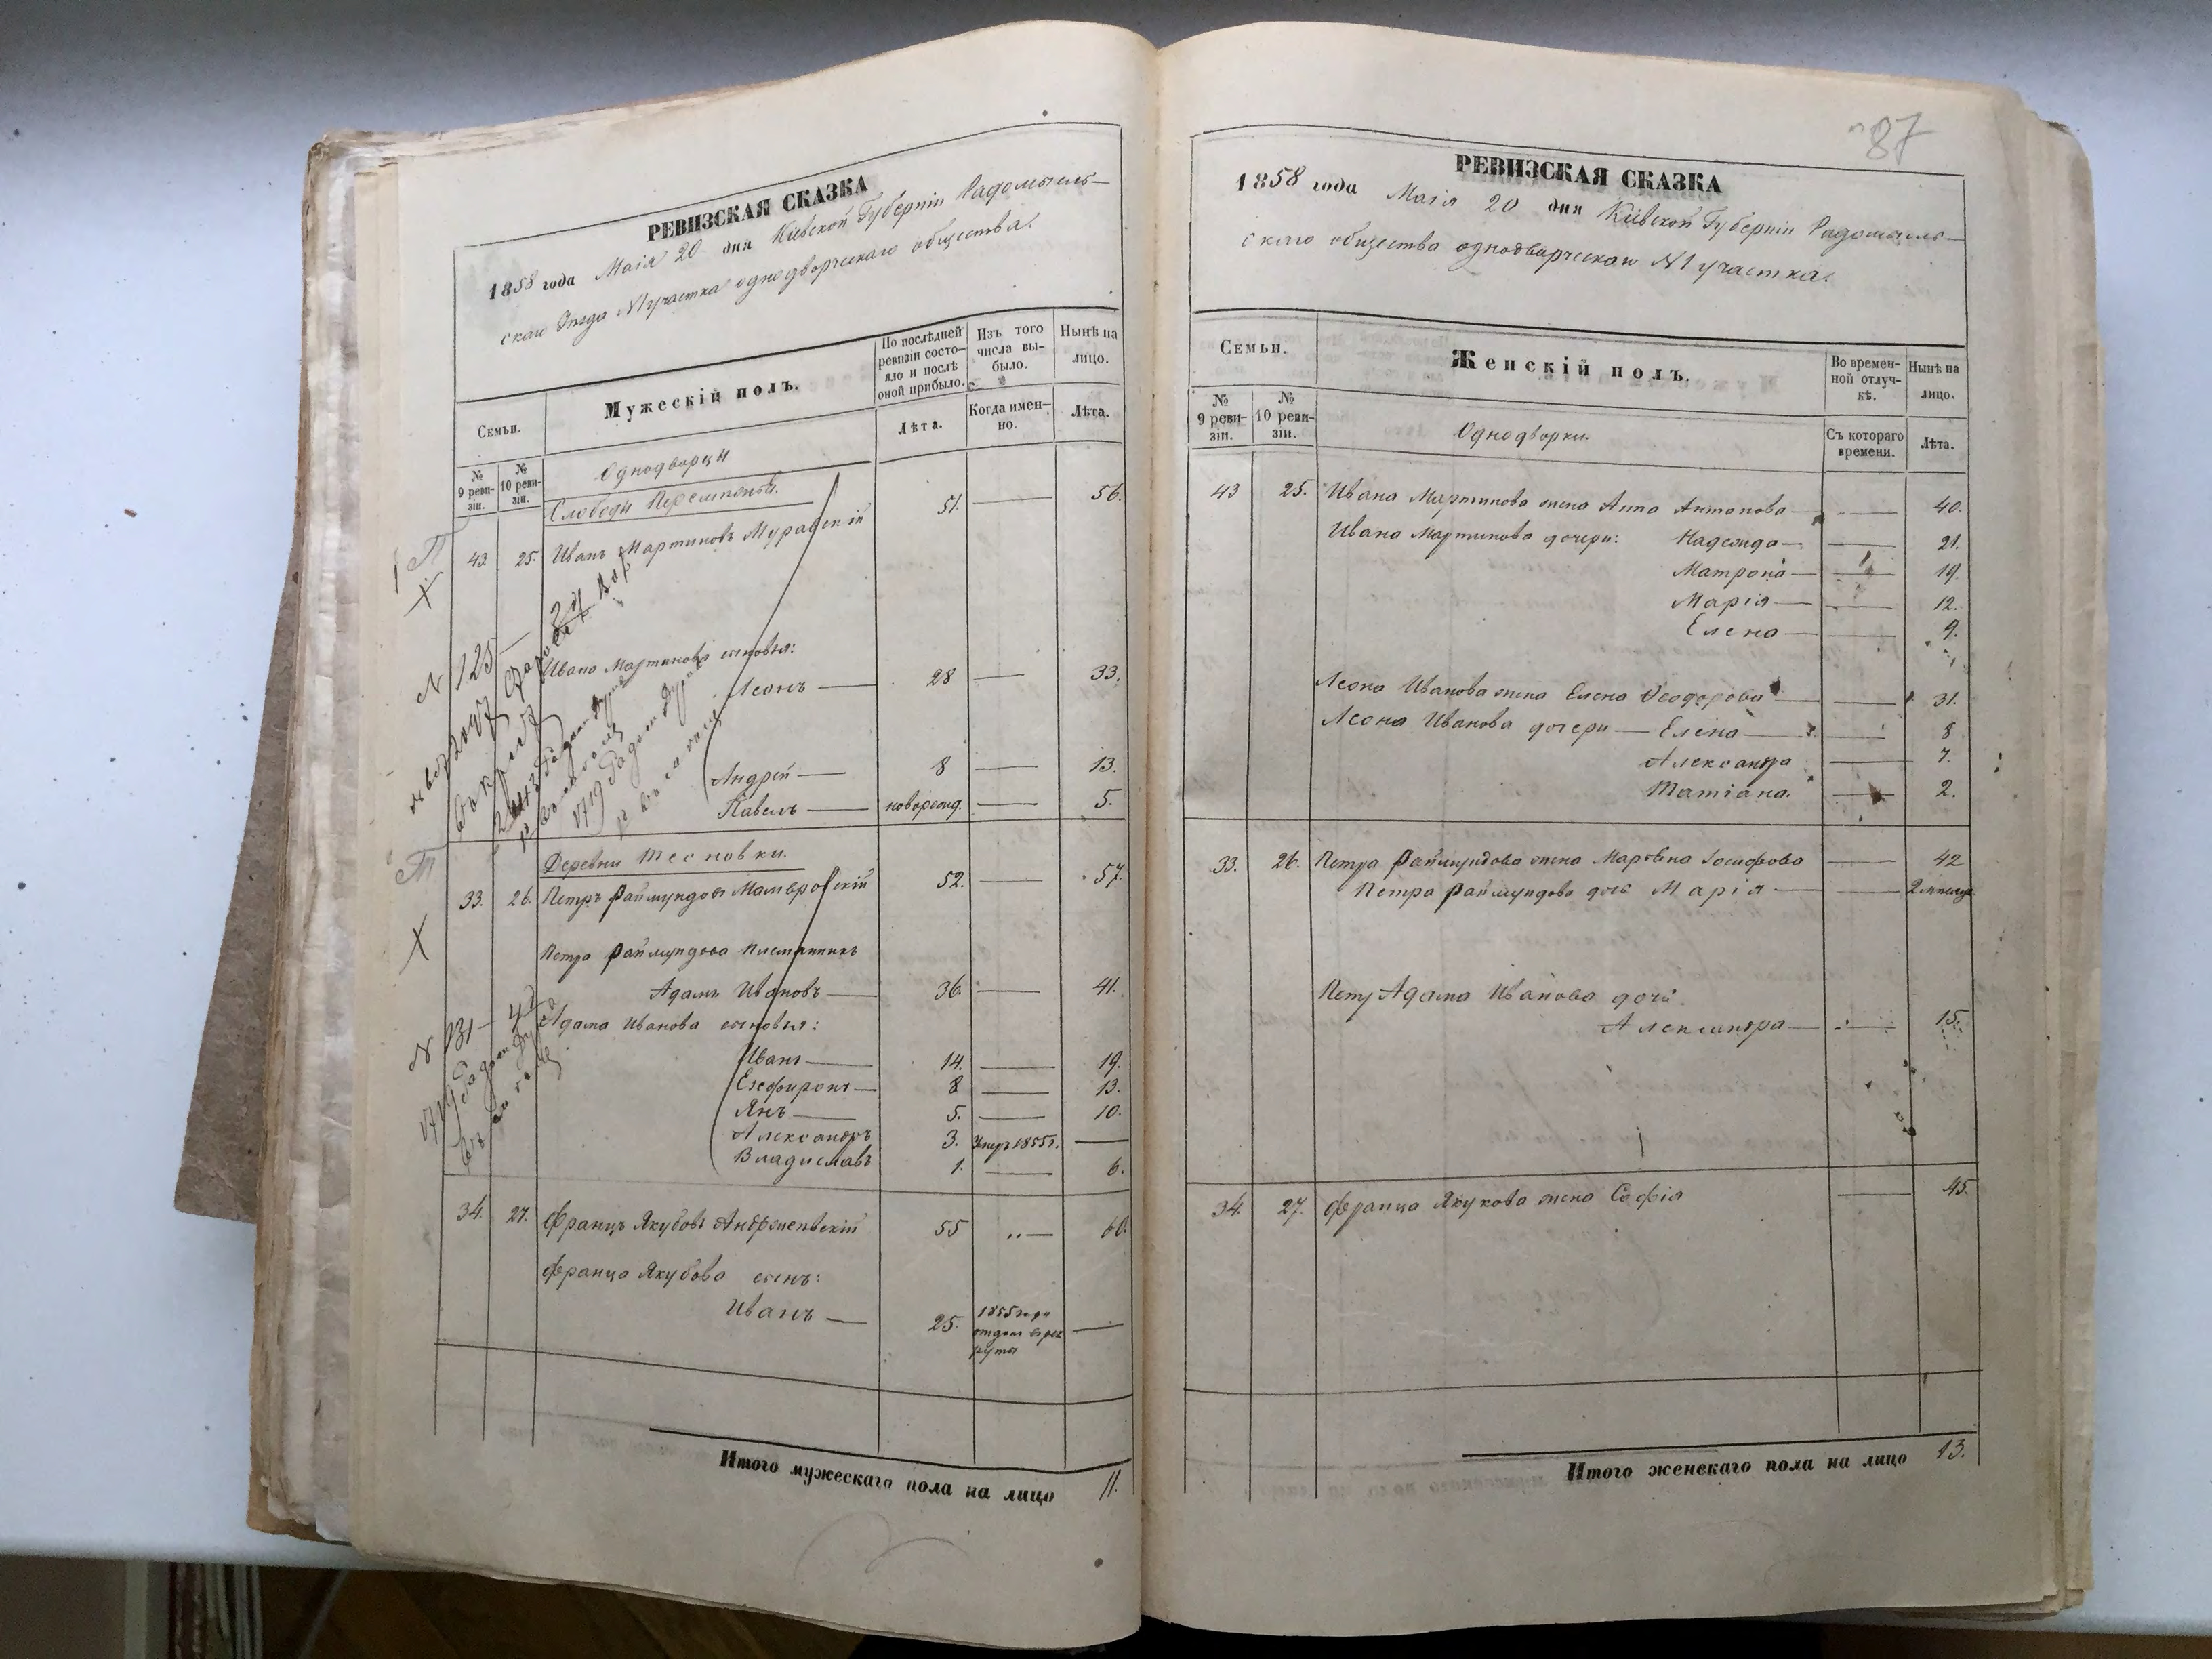 РЕВИЗСКАЯ СКАЗКА
1858 года Маія 20 дня Кіевской Губерніи Радомысль-
скаго Уѣзда №1 участка однодворческаго общества.
Семьи.
Мужескій полъ.
По послѣдней ревизіи состо-яло и послѣ оной прибыло.
Изъ того числа вы-было.
Нынѣ на лицо.
№ 9 реви-зіи.
№ 10 реви-зіи.
Лѣта.
Когда имен-но.
Лѣта.
Однодворцы
Слободы
43. 25. Иванъ Мартиновъ Муравскій 51. 56.
Ивана Мартинова сыновья:
Леонъ 28 33.
Андрей 8 13.
Павелъ новорожд. 5.
№ 125
Деревни Тесновки.
33. 26. Петръ Раймундовъ 52. 57.
Петра Раймундова племянникъ
Адамъ Ивановъ 36. 41.
Адама Иванова сыновья:
Иванъ 14. 19.
8 13.
Янъ 5. 10.
Александръ 3. Умеръ 1855 г.
Владиславъ 1. 6.
№ 131
34. 27. Францъ Якубовъ Андржеевскій 55 60.
Франца Якубова сынъ:
Иванъ 25. 1855 года отданъ въ рекруты
Итого мужескаго пола на лицо 11.
87
РЕВИЗСКАЯ СКАЗКА
1858 года Маія 20 дня Кіевской Губерніи Радомысль-
скаго общества однодворческаго №1 участка.
Семьи.
Женскій полъ.
Во времен-ной отлуч-кѣ.
Нынѣ на лицо.
№ 9 реви-зіи.
№ 10 реви-зіи.
Однодворки.
Съ котораго времени.
Лѣта.
43 25. Ивана Мартинова жена Анна Антонова 40.
Ивана Мартинова дочери: Надежда 21.
Матрона 19.
Марія 12.
Елена 9.
Леона Иванова жена Елена Ѳеодорова 31.
Леона Иванова дочери Елена 8
Александра 7.
Татіана. 2.
33. 26. Петра Раймундова жена Мартина Іосифова 42
Петра Раймундова дочь Марія
Адама Иванова дочь
Александра 15.
34. 27. Франца Якукова жена Софія 45.
Итого женскаго пола на лицо 13.